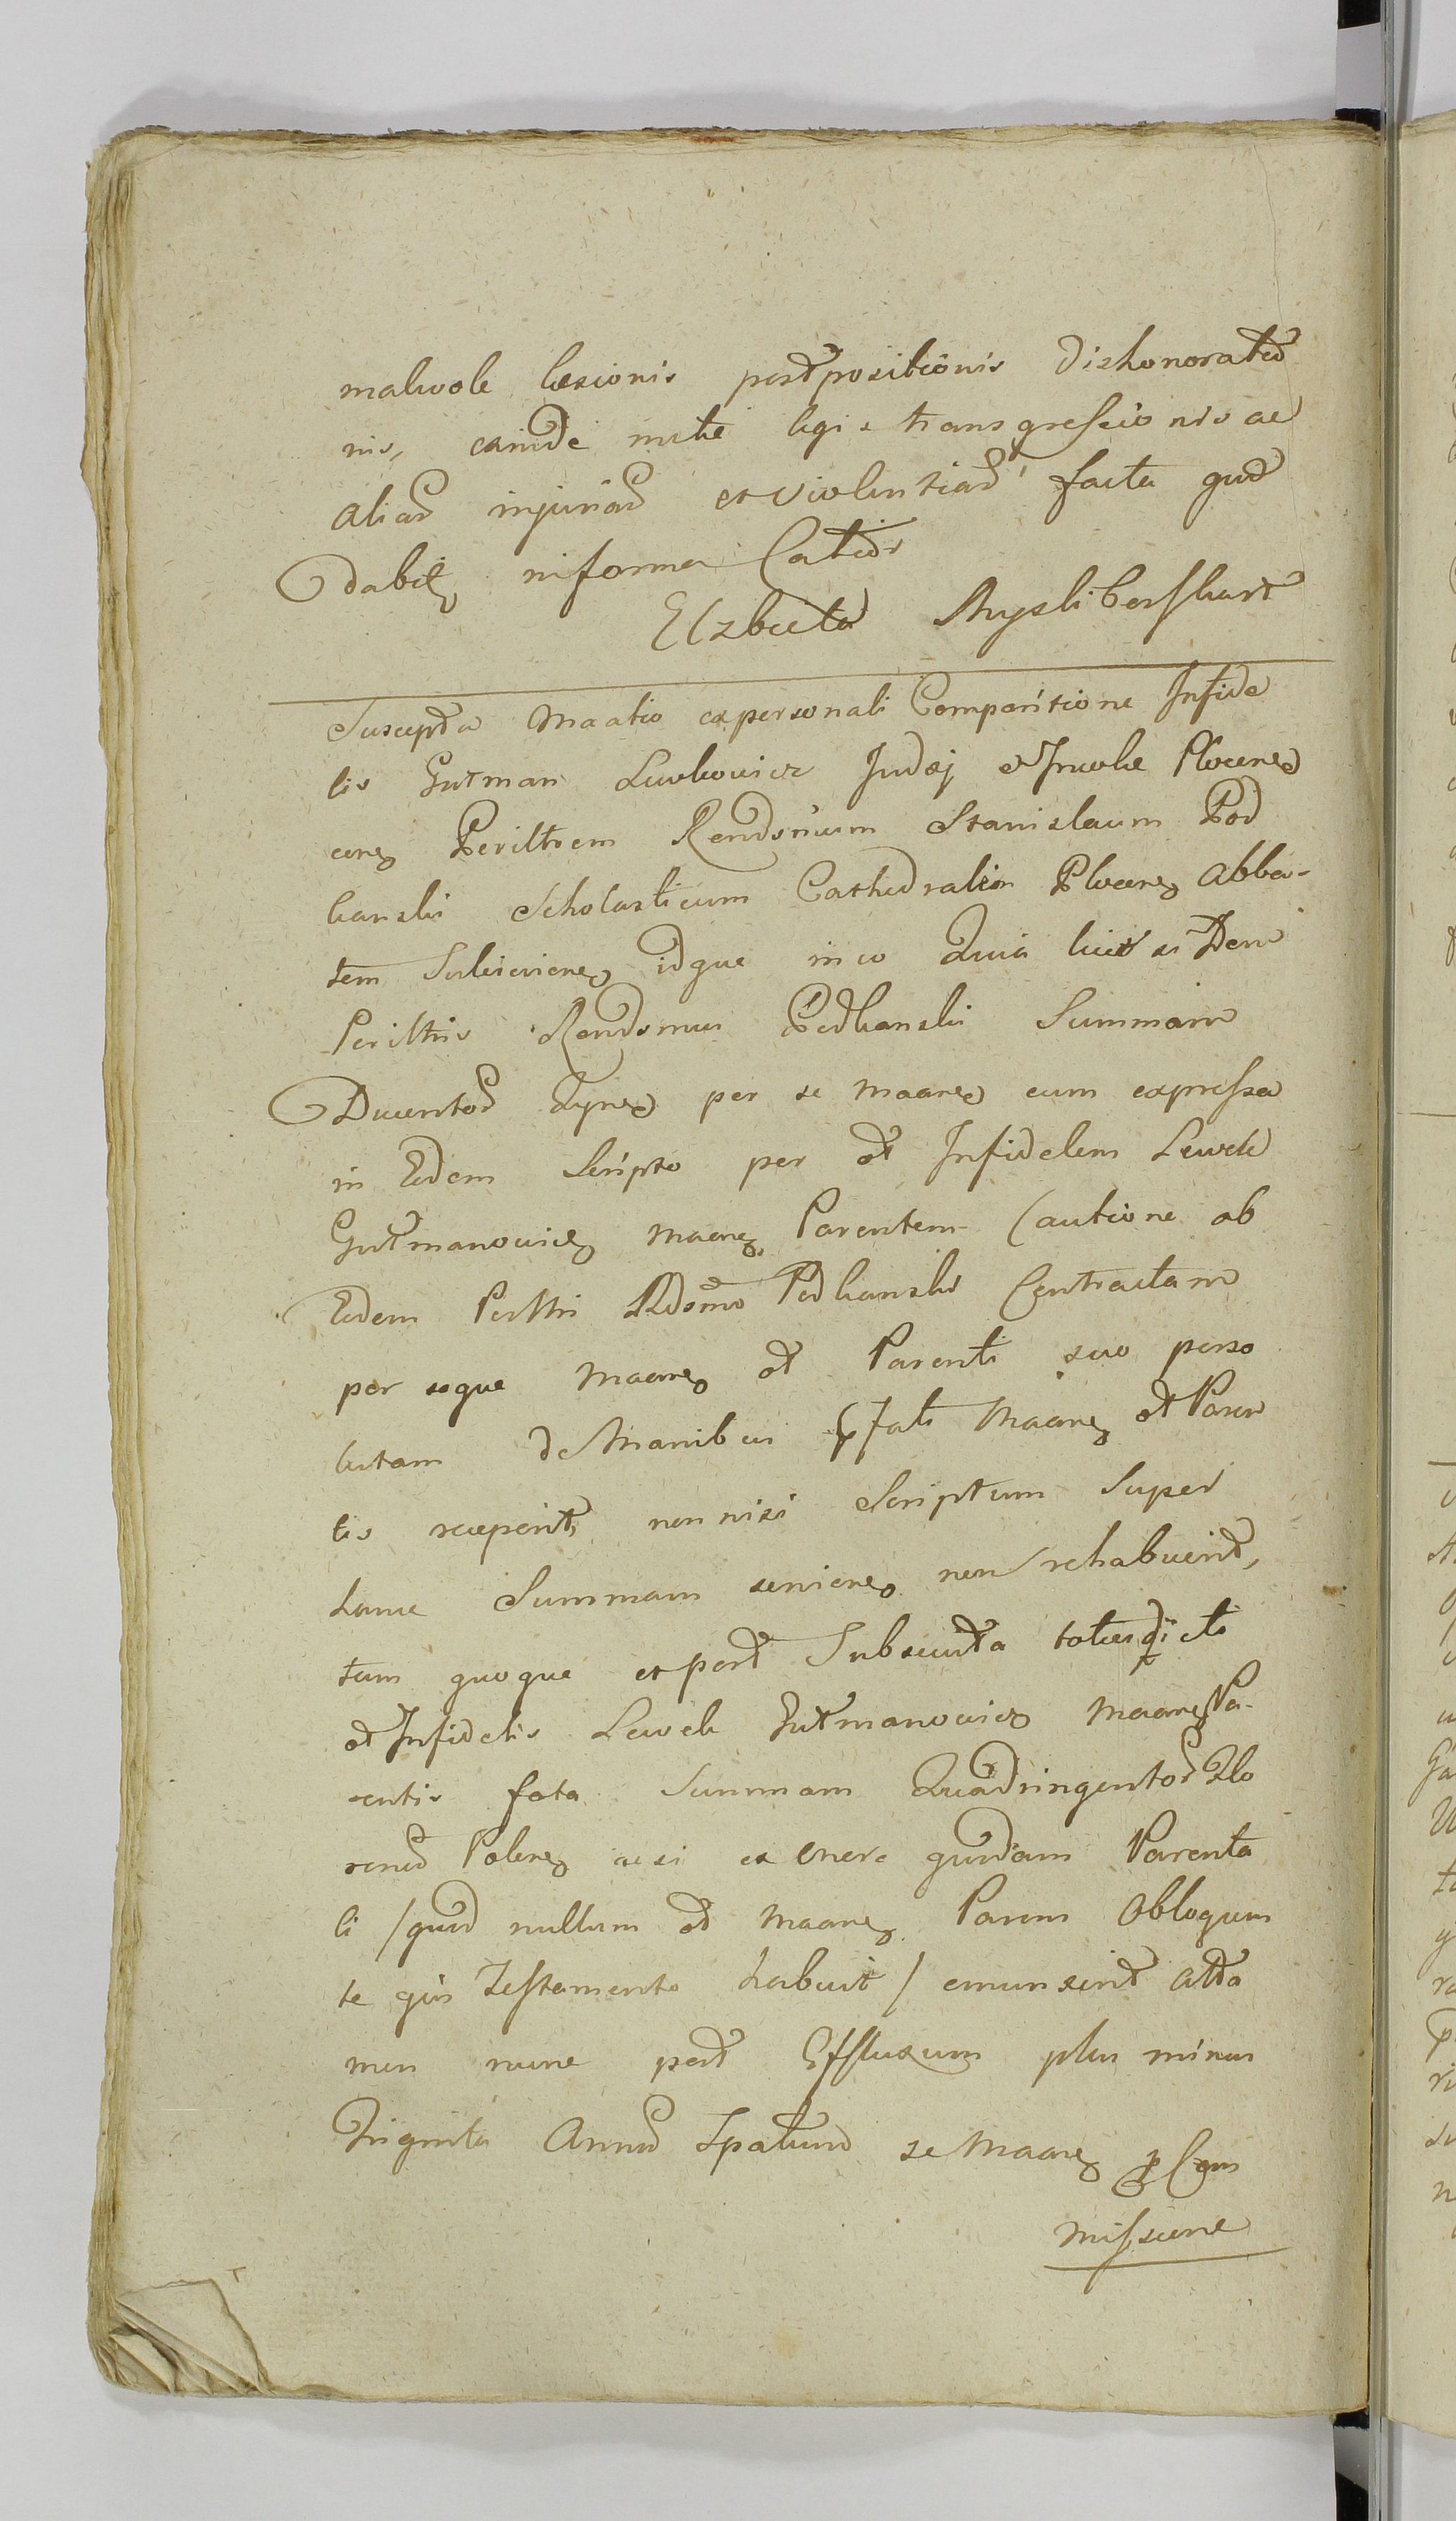 malevole læsionis postpositionis dishonoratio
nis, exinde multæ legis transgressionis ac
aliar injuriar et violentiar facta quæ
dabit informa Catior
Elzbieta
Suscepta Maatio ex personali Comparitione Infide
lis Gutman Lewkowicz Judæj et Incolæ Plocen
cone Perilltrem Rendsmum Stanislaum Pod
kanski Scholasticum Cathedralem Plocen Abba-
tem Suleiovien idque in eo Quia licet Idem
Perilltris Rendsmus Podkanski Summam
Ducentor Tynf per se Maanem cum expressa
in Eodem Scripto per et Infidelem Lewek
Gutmanowicz Maanem Parentem Cautione ab
Eodem Perlltri Rdsmo Podkanski Contractam
per seque Maanem et Parenti suo perso
lutam de Manibus pfati Maanem et Paren
tis receperit, non nisi Scriptum super
hanc Summam serviens non rehabuerit,
tum quoque et post Subsecuta toties dicti
et Infidelis Lewek Gutmanowicz Maanem Pa-
rentis fata Summam Quadringentor Flo
renor Polon ac si ex onere quodam Parenta
li /quod nullum et Maanem Parens Obloquen
te ejus Testamento habuit/ emunxerit atta
men nunc post Effluxum plus minus
Triginta Annor Spatium se Maanem p Com
missione